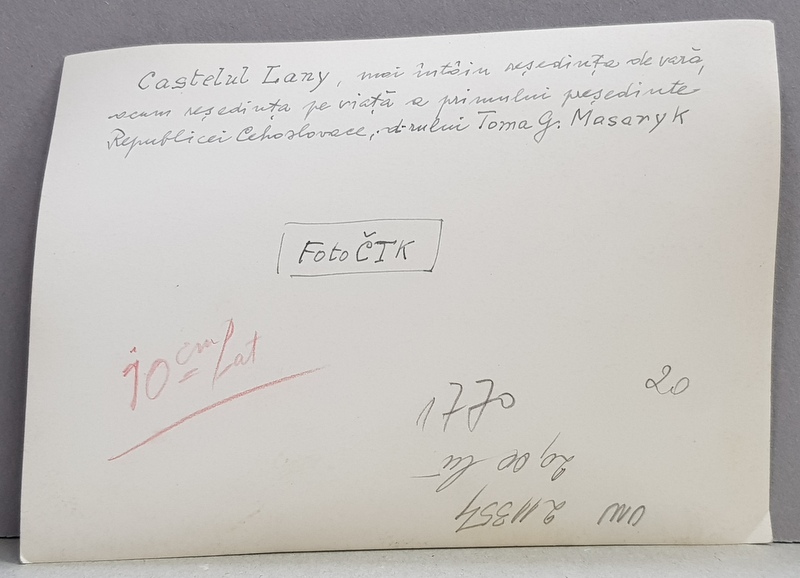 Castelul Lany, mai întâiu reședința de vară,
acum reședința pe viață a primului președinte
Republicei Cehoslovace, d-rului Toma G. Masaryk
Foto ČTK
10 cm lat
20
1770
29,00 lei
211354